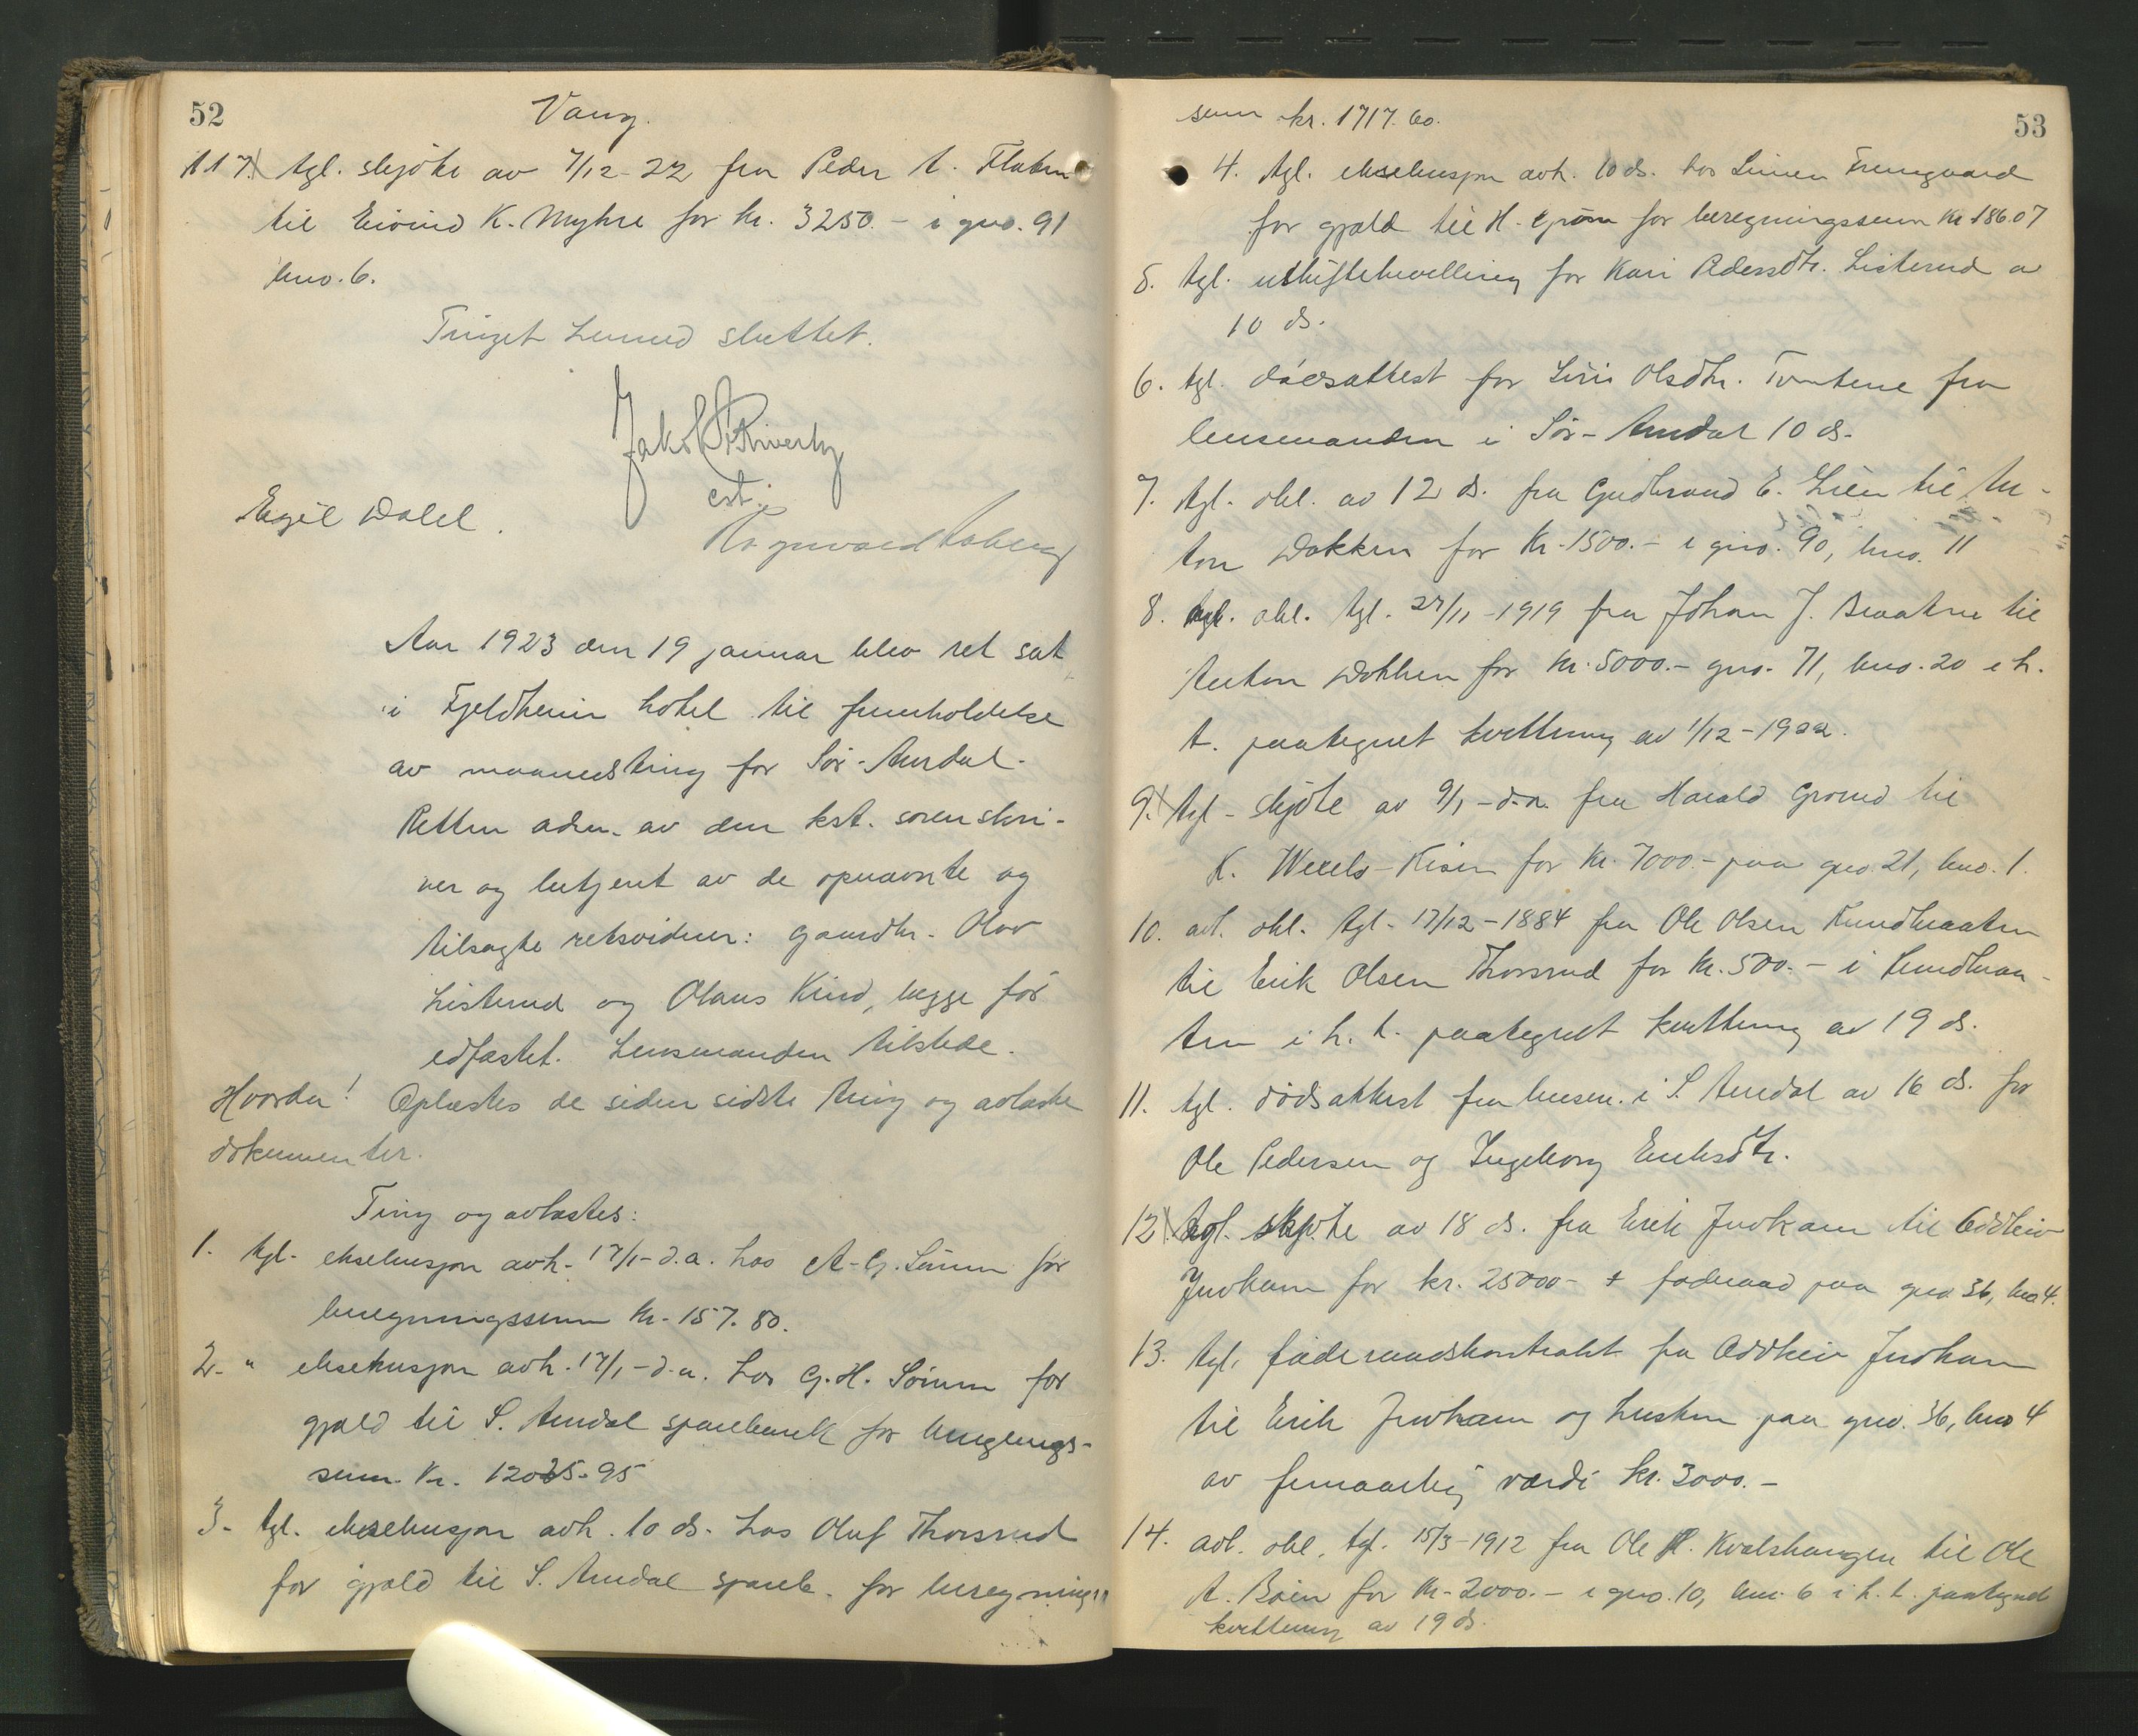 52
Vang.
117. tgl. skjöte av 7/12-22 fra Peder A. Flaten
til Eivind K. Myhre for kr. 3250.- i gno. 91
bno. 6.
Tinget hermed sluttet.
Jakob
cst.
Egil Dalel.
Aar 1923 den 19 januar blev ret sat
i Fjeldheim hotel til fremholdelse
av maanedsting for Sör-Aurdal.
Retten adm. av den kst. sorenskri-
ver og betjent av de opnævnte og
tilsagte retsvidner: gaardbr. Olav
Listerud og Olaus Kind, begge för
edfæstet. Lensmanden tilstede.
Hvorda! Oplæstes de siden sidste ting og avlæste
dokumenter.
Ting og avlæstes:
1. tgl. eksekusjon avh. 17/1-d.a. hos A. G. Sörum for
beregningssum kr. 157.80.
2. " eksekusjon avh. 17/1-d.a. hos G. H. Sörum for
gjæld til S. Aurdal sparebank for beregnings-
sum kr. 95
3. tgl. eksekusjon avh. 10 ds. hos Oluf Thorsrud
for gjæld til S. Aurdal spareb. for beregnings
53
sum kr. 1717.60.
4. tgl. eksekusjon avh. 10 ds. hos
for gjæld til H. for beregningssum kr 186.07
5. tgl. utskiftebevilling for Kari Pedersdtr. Listerud av
10 ds.
6. tgl. dödsattest for Siri Olsdtr. Tomtene fra
lensmanden i Sör-Aurdal 10 ds.
7. tgl. obl. av 12 ds. fra Gudbrand E. Lien til An-
ton Dokken for kr. 1500.- i gno. 90, bno. 11
8. obl. tgl. 27/11-1919 fra Johan J. Braaten til
Anton Dokken for kr. 5000.- gno. 71, bno. 20 i h.
t. paategnet kvittering av 1/12-1922.
9. tgl. skjöte av 9/1-d.a. fra Harald Grönud til
K. Wexels-Riser for kr. 7000.- paa gno. 21, bno. 1.
10. avl. obl. tgl. 17/12-1884 fra Ole Olsen Rundbraaten
til Erik Olsen Thorsrud for kr. 500.- i Rundbraa-
ten i h. t. paategnet kvittering av 19 ds.
11. tgl. dödsattest fra lensm. i S. Aurdal av 16 ds. for
Ole Pedersen og Ingeborg Eriksdtr.
12. tgl. skjöte av 18 ds. fra Erik Juvkam til Oddleiv
Juvkam for kr. 25000- + föderaad paa gno 36, bno 4.
13. tgl. föderaadskontrakt fra Oddleiv Juvkam
til Erik Juvkam og hustru paa gno. 36, bno 4
av femaarlig værdi kr. 3000.-
14. avl. obl. tgl. 15/3-1912 fra Ole H. Kvalshaugen til Ole
A. Böen for kr. 2000.- i gno. 10, bno. 6 i h. t. paategnet
kvittering av 19 ds.